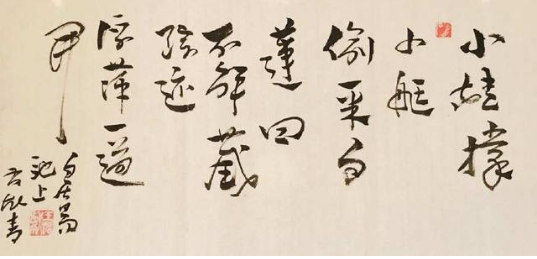 小娃撑
小艇
偷采白
蓮回
不解藏
踪迹
浮萍一道
开
白居易
池上